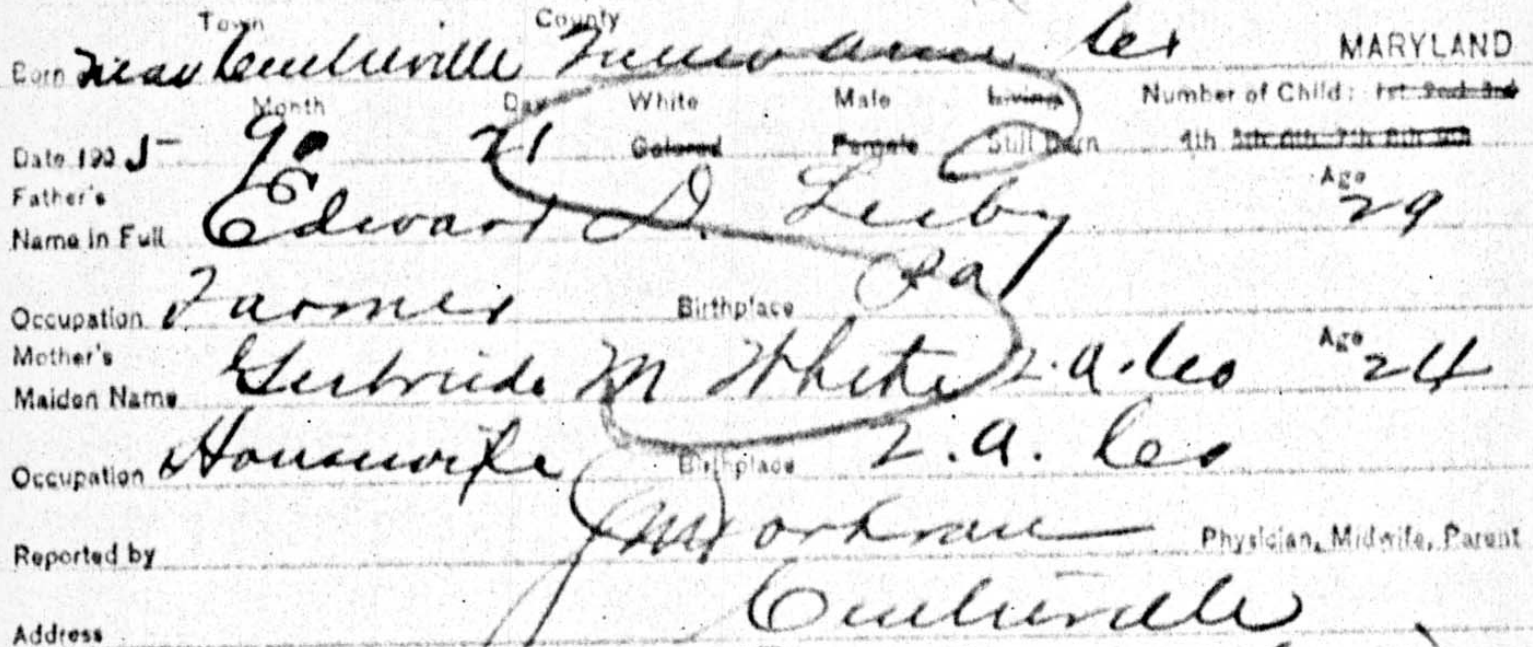 Town County
Born near Centreville Queen Anne Co MARYLAND
Month Day White Male Living Number of Child: 1st 2nd 3rd
Date 1905 21 Colored Female Still Born 4th 5th 6th 7th 8th 9th
Father's Age
Name in Full Edward D. Leiby 29
Pa
Occupation Farmer Birthplace
Mother's Age
Maiden Name Gertrude M White Q.A. Co 24
Occupation Housewife Birthplace Q.A. Co
Reported by Physician, Midwife, Parent
Address Centreville